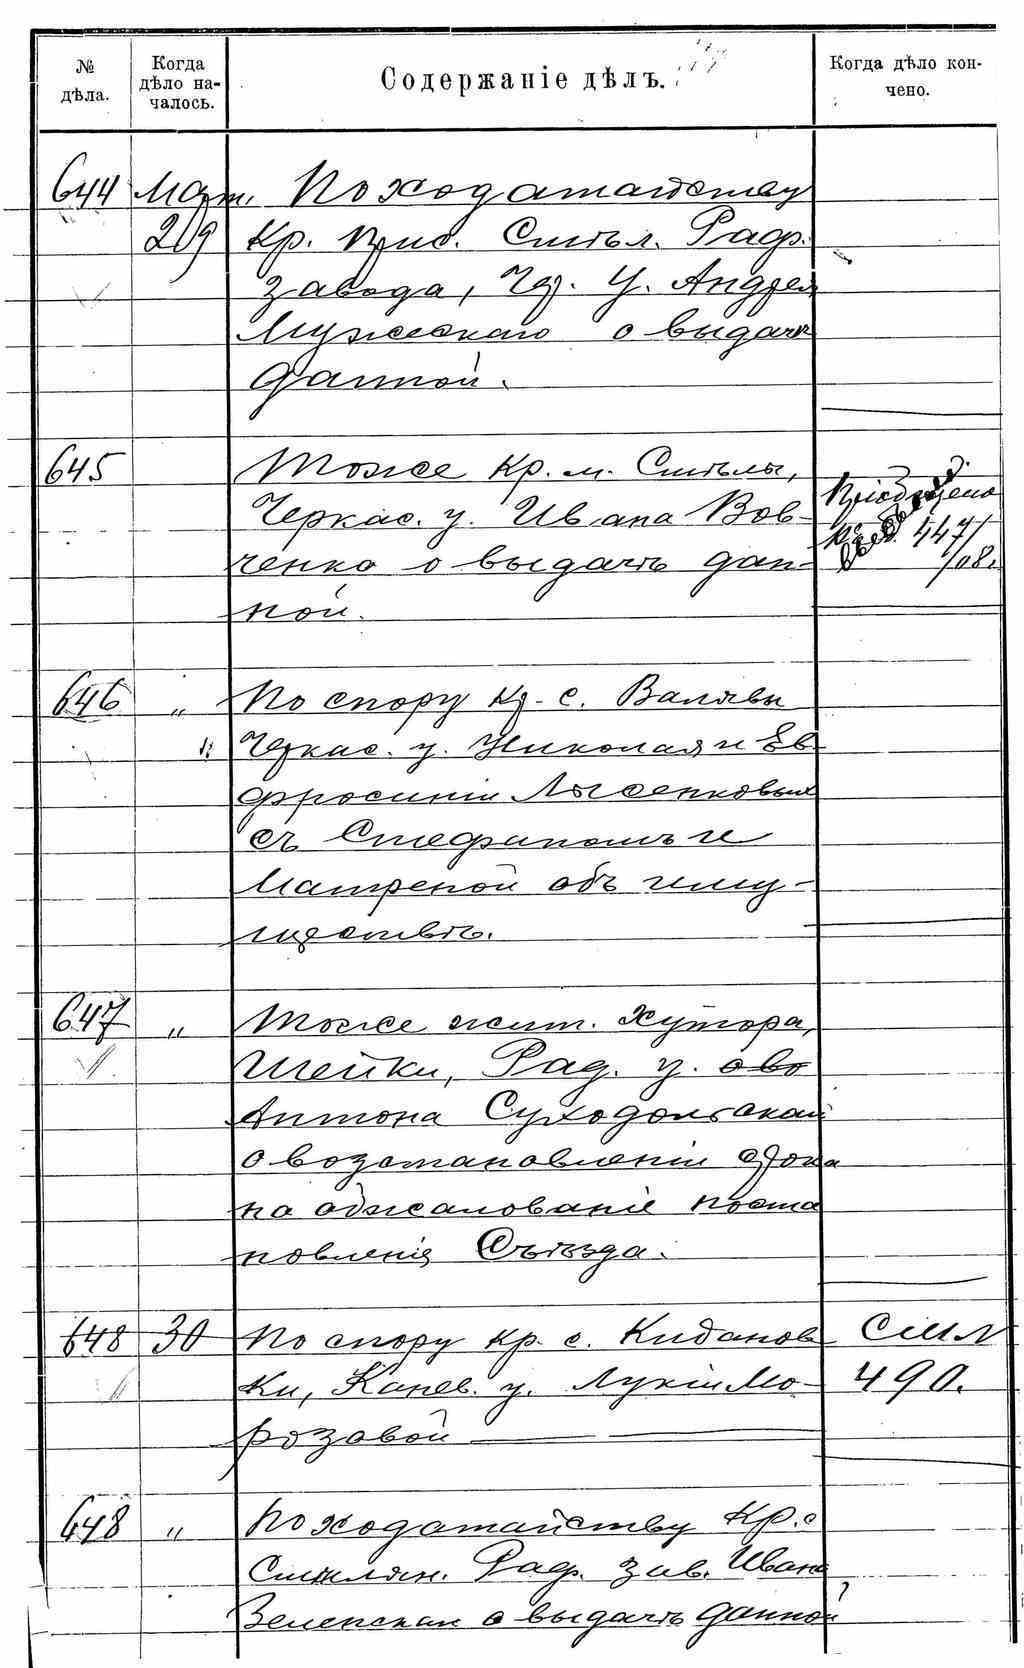 № дѣла.
Когда дѣло на-
чалось.
Содержаніе дѣлъ.
Когда дѣло кон-
чено.
644 Март. По ходатайству
29 Кр. прис. Смѣл. Раф.
завода, Чер. у. Андрея
о выдачѣ
данной.
645 Тоже кр. м. Смѣлы,
Черкас. у. Ивана Вов-
ченко о выдачѣ дан-
ной.
Пріобщено
къ 447/
/08.
646 " По спору кр. с. Валявы
" Черкас. у. Николая и Ев-
фросиніи Лысенковых
съ Стефаномъ и
Матреной объ иму-
ществѣ.
647 " Тоже жит. хутора,
Шейки, Рад. у.
Антона Суходольскаго
о возстановленіи срока
на обжалованіе поста
новленія Съѣзда.
648 30 По спору кр. с. Кидановки
ки, Канев. у. Лукіи Мо-
розовой
490.
648 " По ходатайству Кр. с
Смѣлян. Раф. зав. Ивана
Зеленскаго о выдачѣ данной